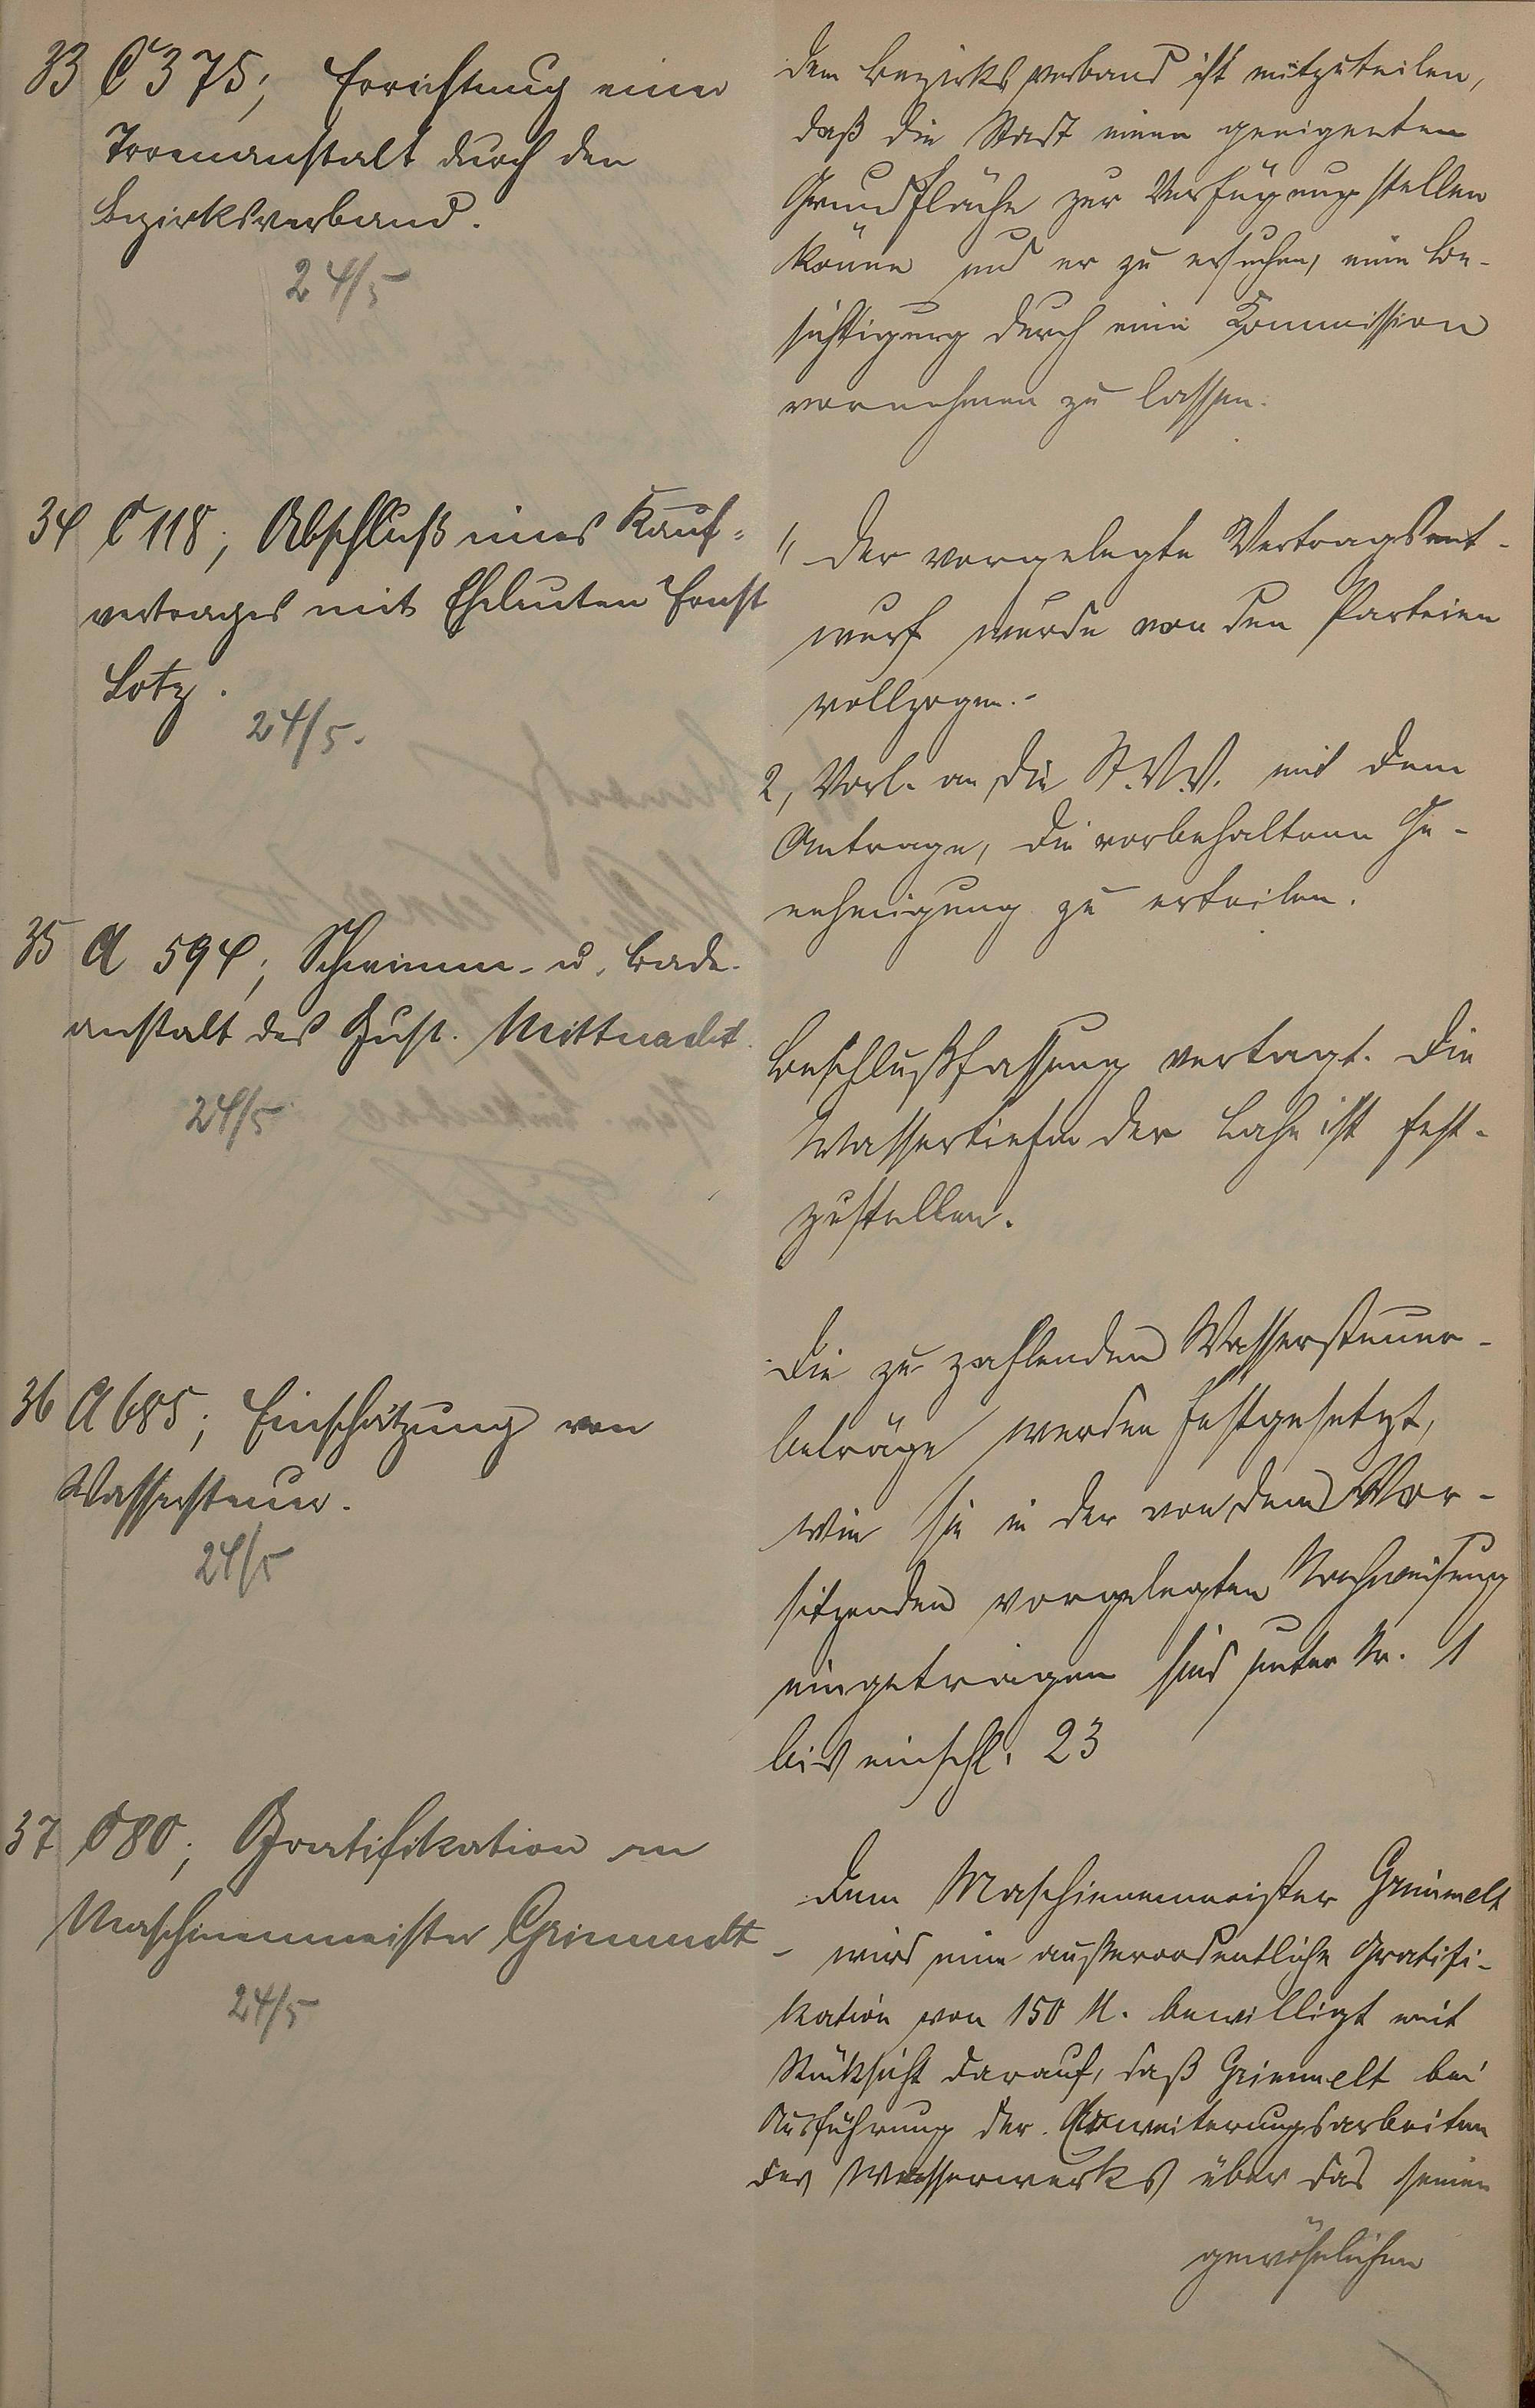 33 C 375; Errichtung einer
Irrenanstalt durch den
Bezirksverband.
24/5
Dem Bezirksverband ist mitzuteilen,
daß die Stadt einen geeigneten
Grundfläche zur Verfügung stellen
könne und er zu ersuchen, eine Be-
sichtigung durch eine Kommission
vornehmen zu lassen.
34 C 118; Abschluß eines Kauf-
vertrages mit Eheleuten Ernst
Lotz.
24/5.
1, Der vorgelegte Vertragsent-
wurf wurde von den Parteien
vollzogen.-
2, Vorl. an die St.V.V. mit dem
Antrage, die vorbehaltene Ge-
nehmigung zu erteilen.
35 A 594; Schwimm- u. Bade-
anstalt des Gust. Mittnacht.
24/5
Beschlußfassung vertagt. Die
Wassertiefe der Lahn ist fest-
zustellen.
36 A 685; Einschätzung von
Wassersteuer.
24/5
Die zu zahlenden Wassersteuer-
beträge werden festgesetzt,
wie sie in der von dem Vor-
sitzenden vorgelegten Nachweisung
eingetragen sind unter Nr. 1
bis einschl. 23
37 C 80; Gratifikation an
Maschinenmeister Grimmelt
24/5
Dem Maschinenmeister Grimmelt
wird eine außerordentliche Gratifi-
kation von 150 M. bewilligt mit
Rücksicht darauf, daß Grimmelt bei
Ausführung der Erweiterungsarbeiten
des Wasserwerks über das seinen
gewöhnlichen